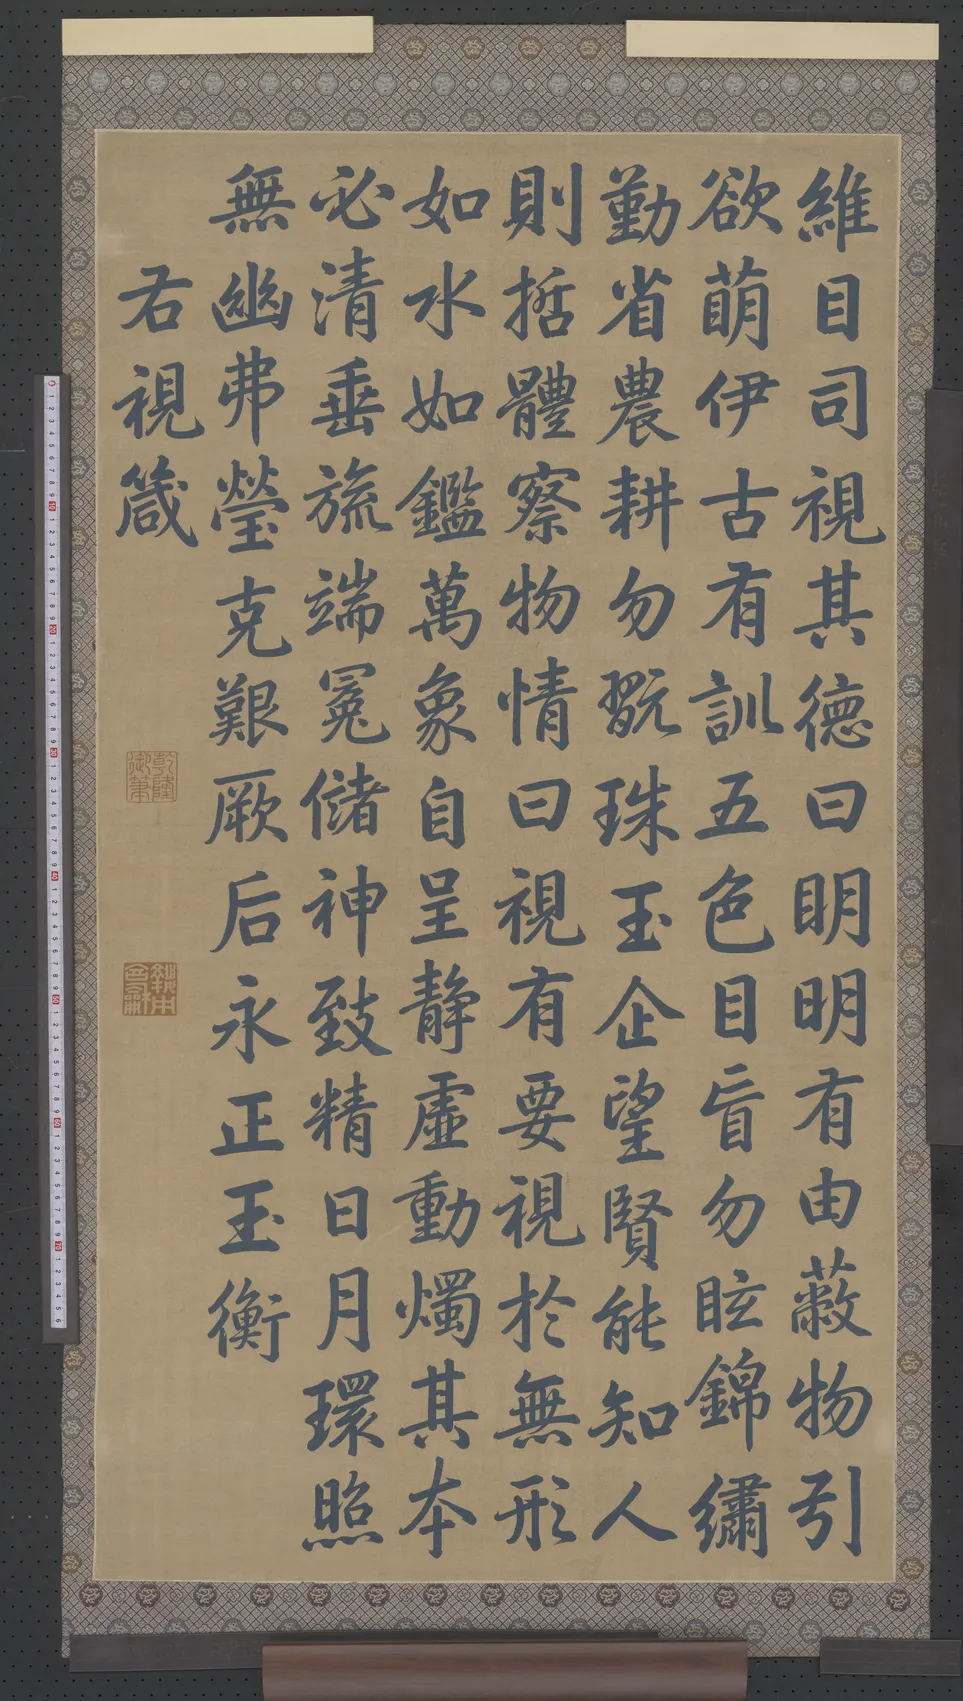 維目司視其德曰明明有由蔽物引
欲萌伊古有訓五色目盲勿眩錦繡
勤省農耕勿翫珠玉企望賢能知人
則哲體察物情曰視有要視於無形
如水如鑑萬象自呈靜虛動燭其本
必清垂旒端冕儲神致精日月環照
無幽弗瑩克艱厥后永正玉衡
右視箴
乾隆御筆